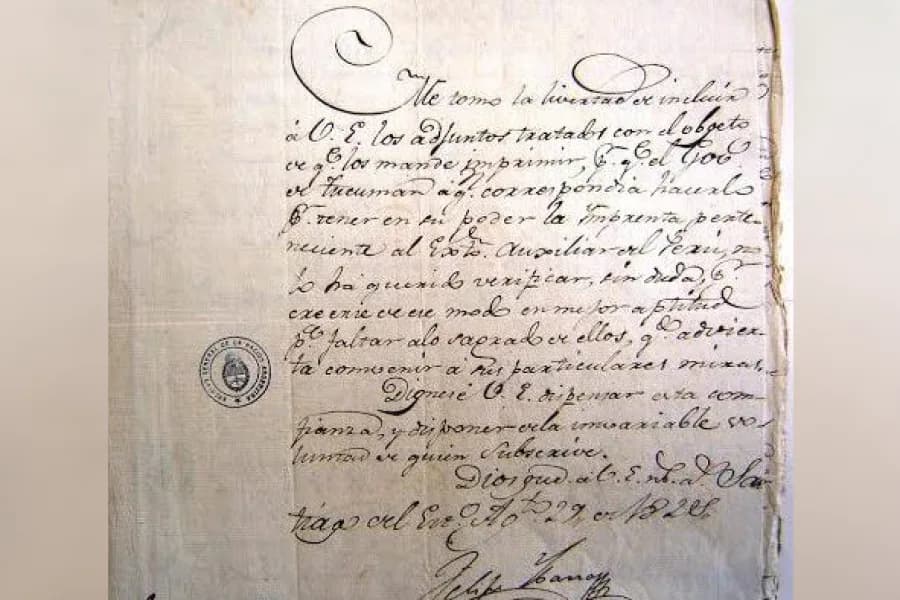 Me tomo la livertad de incluir
á V. E. los adjuntos tratados con el obgeto
de qe. los mande imprimir, pr. qe. el Gov.
de Tucuman á qn. correspondia hacerlo
pr. tener en su poder la Imprenta perte-
neciente al Exto. Auxiliar del Perú, no
lo há querido verificar, sin duda, pr.
creerse de ese modo en mejor aptitud
pa. faltar alo sagrado de ellos, qe. advier-
ta convenir a sus particulares miras.
Dignese V. E. dispensar esta con-
fianza, y disponer dela invariable vo-
luntad de quien subscrive.
Dios gue. á V. E. ms. as. San-
tiago del Eso. Ago.
Felipe Ibarra
ARCHIVO GENERAL DE LA NACION ARGENTINA